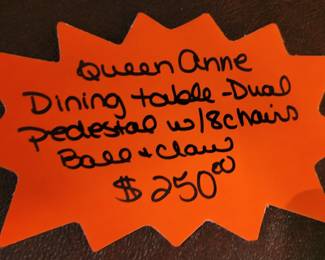 Queen Anne
Dining table - Dual
pedestal w/8chairs
Ball + Claw
$250.00